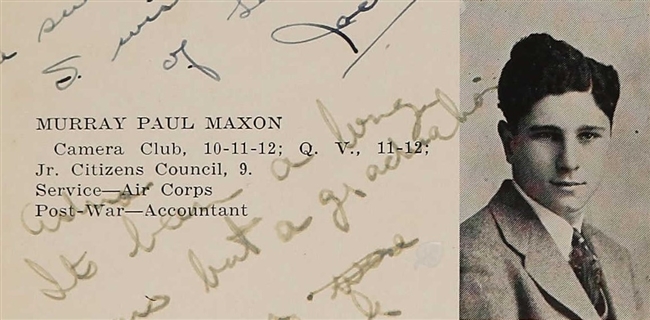 S.
of
MURRAY PAUL MAXON
Camera Club, 10-11-12; Q. V., 11-12;
Jr. Citizens Council, 9.
Service—Air Corps
Post-War—Accountant
It been a long
but a graduation